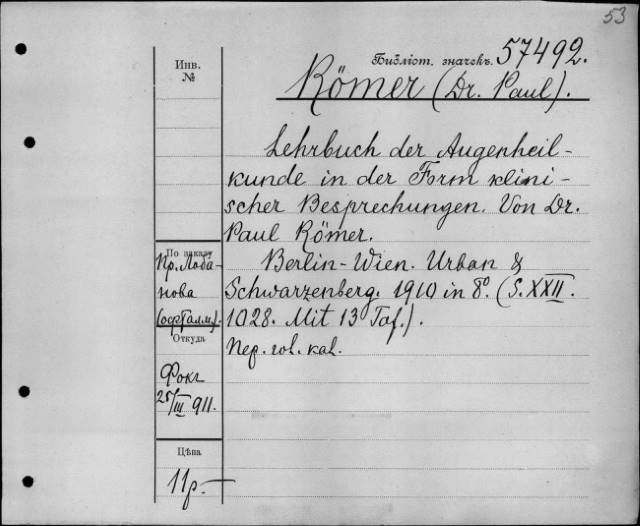 53
Библіот. значекъ 57492.
Инв.
№
Römer (Dr. Paul).
Lehrbuch der Augenheil-
kunde in der Form klini-
scher Besprechungen. Von Dr.
Paul Römer.
Berlin-Wien. Urban &
Schwarzenberg. 1910 in 8º. (S. XXII.
1028. Mit 13 Taf.).
По заказу
Пр. Лоба-
нова
(офталм.).
Откуда
Фокг
25/III 911.
Цѣна
11р.—